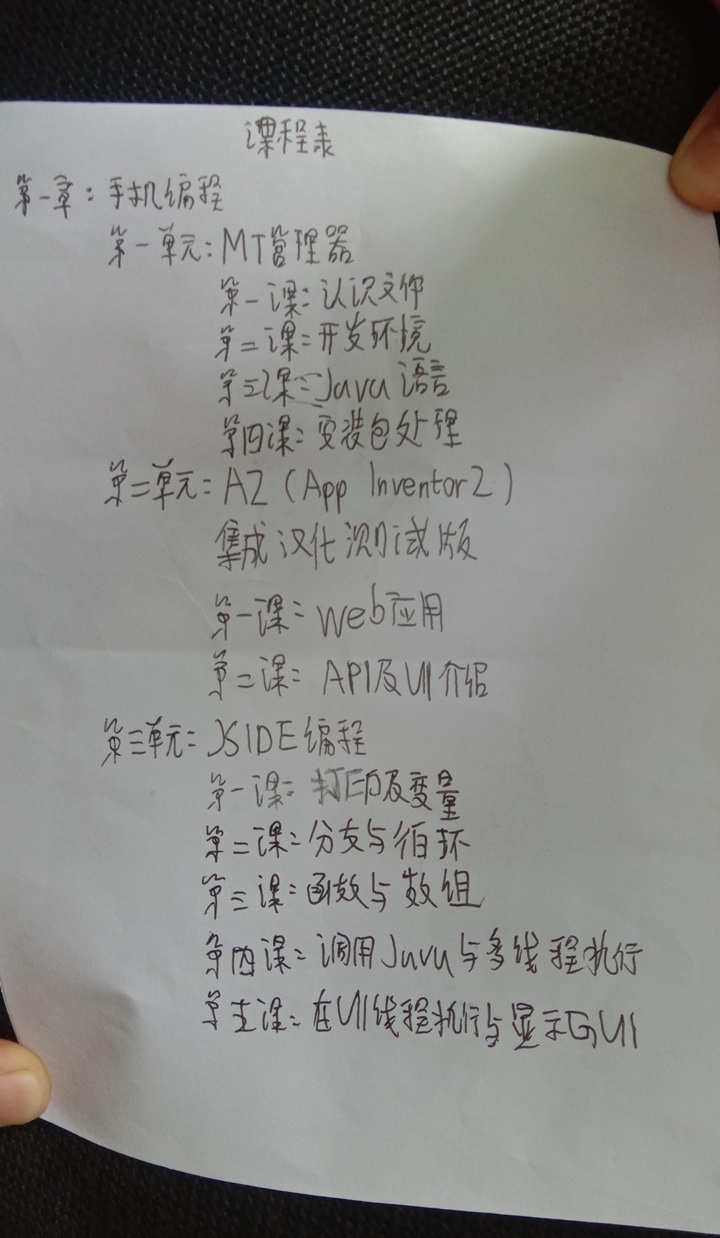 课程表
第一章：手机编程
第一单元：MT管理器
第一课：认识文件
第二课：开发环境
第三课：Java语言
第四课：安装包处理
第二单元：A2（App Inventor2）
集成汉化测试版
第一课：web应用
第二课：API及UI介绍
第三单元：JSIDE编程
第一课：打印及变量
第二课：分支与循环
第三课：函数与数组
第四课：调用Java与多线程执行
第五课：在UI线程执行与显示GUI